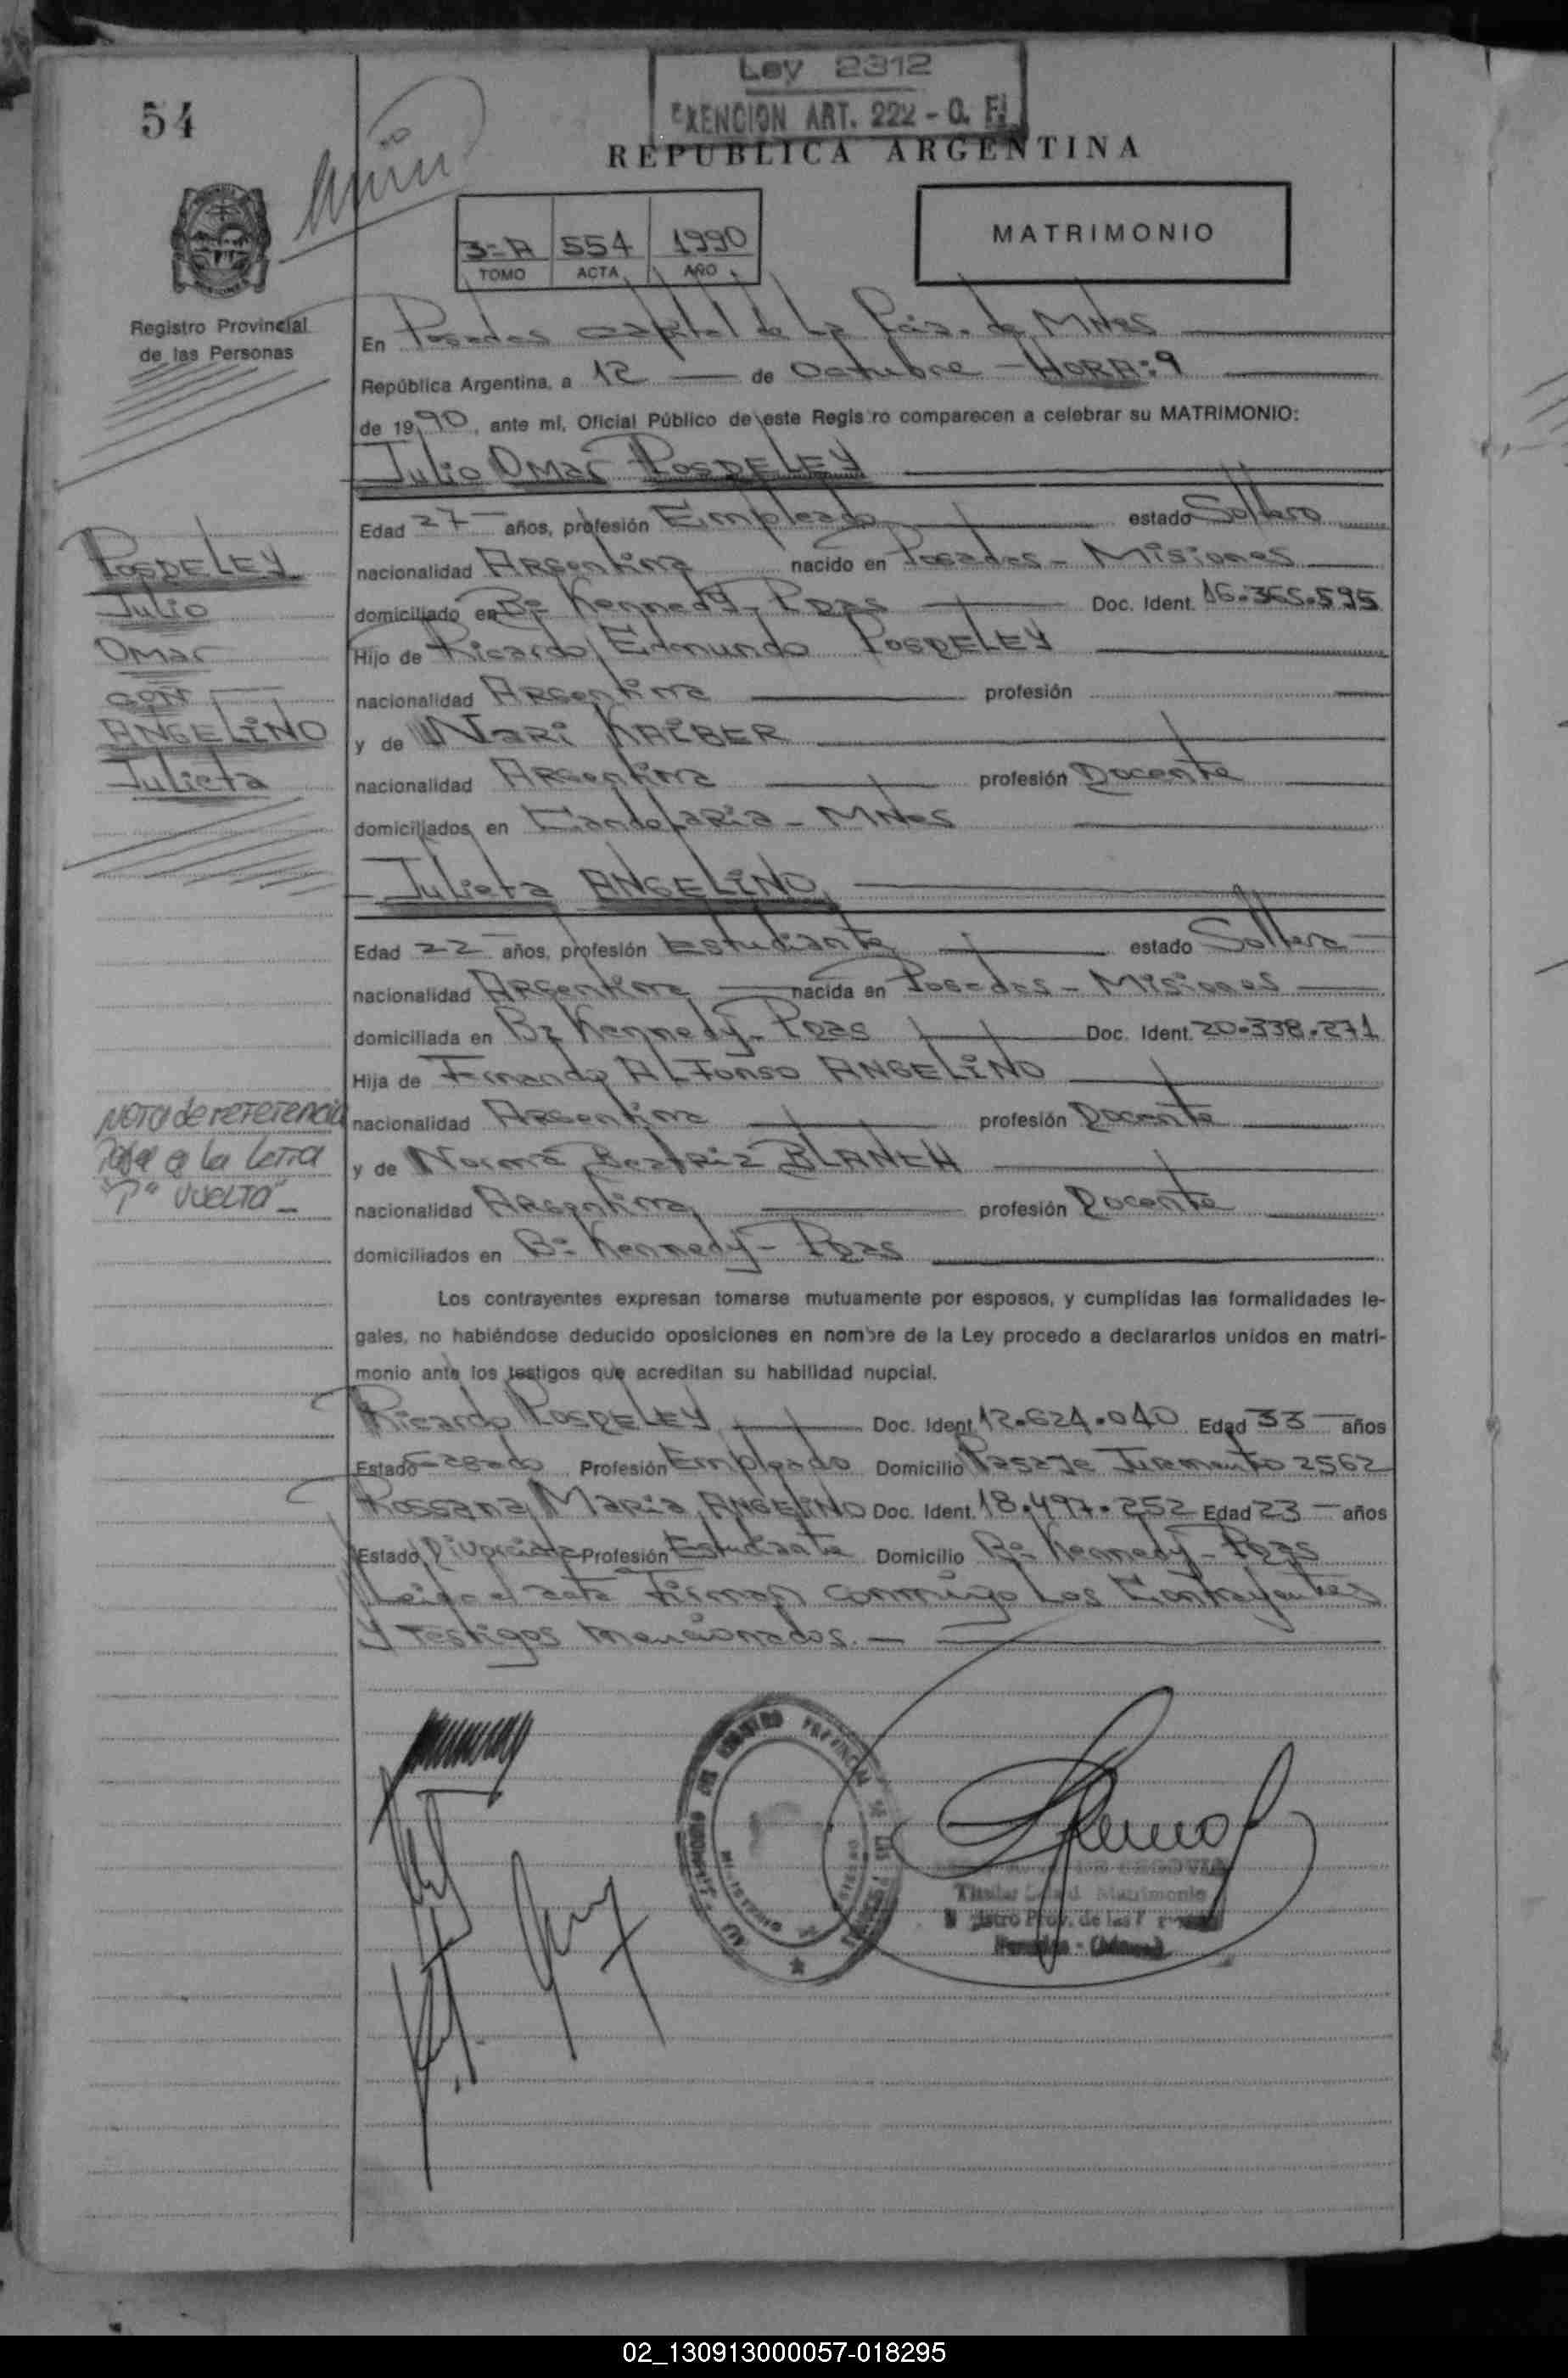 54
Ley 2312
EXENCION ART. 222 - O. F.
REPUBLICA ARGENTINA
3-A 554 1990
TOMO ACTA AÑO
MATRIMONIO
Registro Provincial
de las Personas
En Posadas capital de La Pcia. de Mnes
República Argentina, a 12 de Octubre - HORA: 9
de 1990, ante mi, Oficial Público de este Registro comparecen a celebrar su MATRIMONIO:
Julio Omar POSDELEY
Edad 27 años, profesión Empleado estado Soltero
nacionalidad Argentina nacido en Posadas - Misiones
domiciliado en Bº Kennedy - Pdas Doc. Ident. 16.365.595
Hijo de Ricardo Edmundo POSDELEY
nacionalidad Argentina profesión
y de Nari KAIBER
nacionalidad Argentina profesión Docente
domiciliados en Candelaria - Mnes
Julieta ANGELINO
Edad 22 años, profesión Estudiante estado Soltera
nacionalidad Argentina nacida en Posadas - Misiones
domiciliada en Bº Kennedy - Pdas Doc. Ident. 20.338.271
Hija de Fernando ALFonso ANGELINO
nacionalidad Argentina profesión Docente
y de Norma Beatriz BLANCH
nacionalidad Argentina profesión Docente
domiciliados en Bº Kennedy - Pdas
Los contrayentes expresan tomarse mutuamente por esposos, y cumplidas las formalidades le-
gales, no habiéndose deducido oposiciones en nombre de la Ley procedo a declararlos unidos en matri-
monio ante los testigos que acreditan su habilidad nupcial.
Ricardo POSDELEY Doc. Ident. 12.624.040 Edad 33 años
Estado Casado Profesión Empleado Domicilio Pasaje Juramento 2562
Rossana Maria ANGELINO Doc. Ident. 18.497.252 Edad 23 años
Estado Divorciada Profesión Estudiante Domicilio Bº Kennedy - Pdas
Leida el acta Firman conmigo Los Contrayentes
y testigos mencionados. -
POSDELEY
Julio
Omar
con
ANGELINO
Julieta
Nota de referencia
Pasa a la Letra
"P" VUELTA" -
Matrimonio
02_130913000057-018295